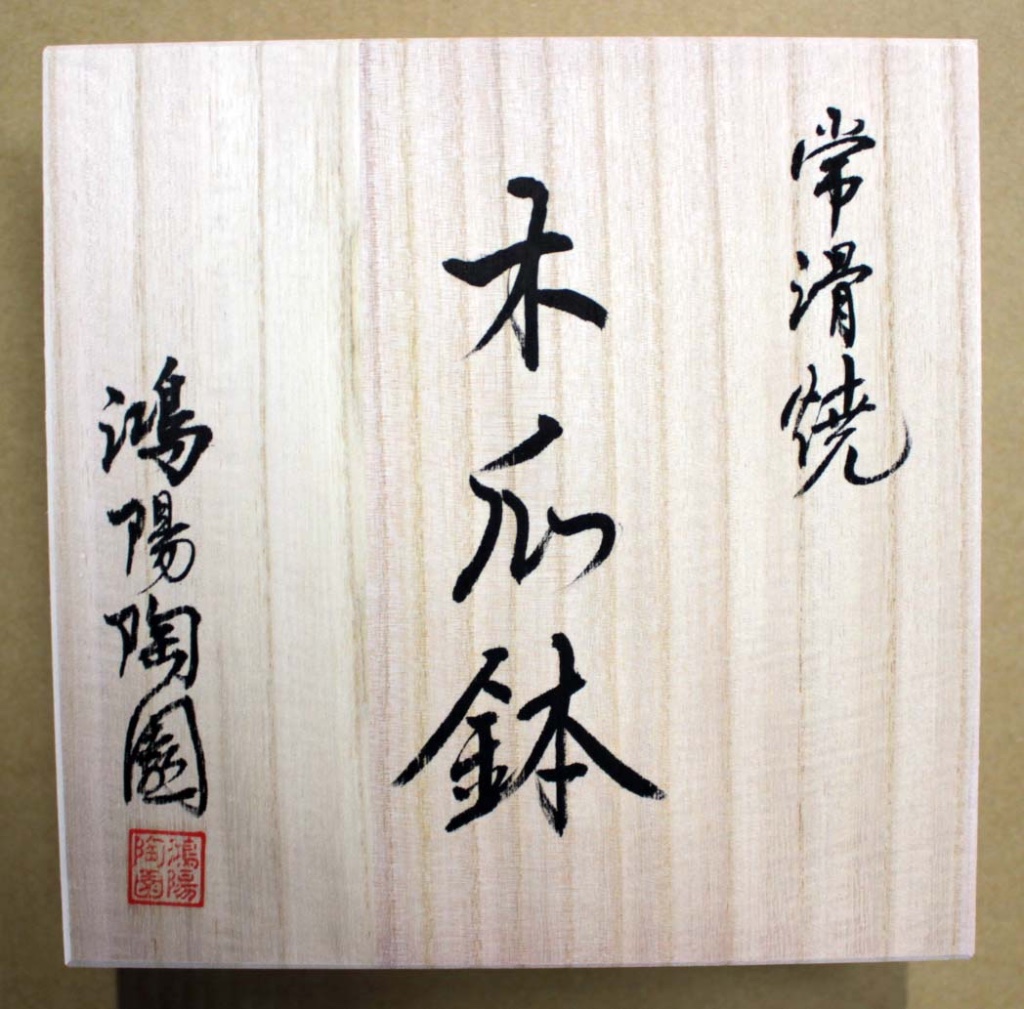 常滑焼
木瓜鉢
鴻陽陶園
鴻陽
陶園